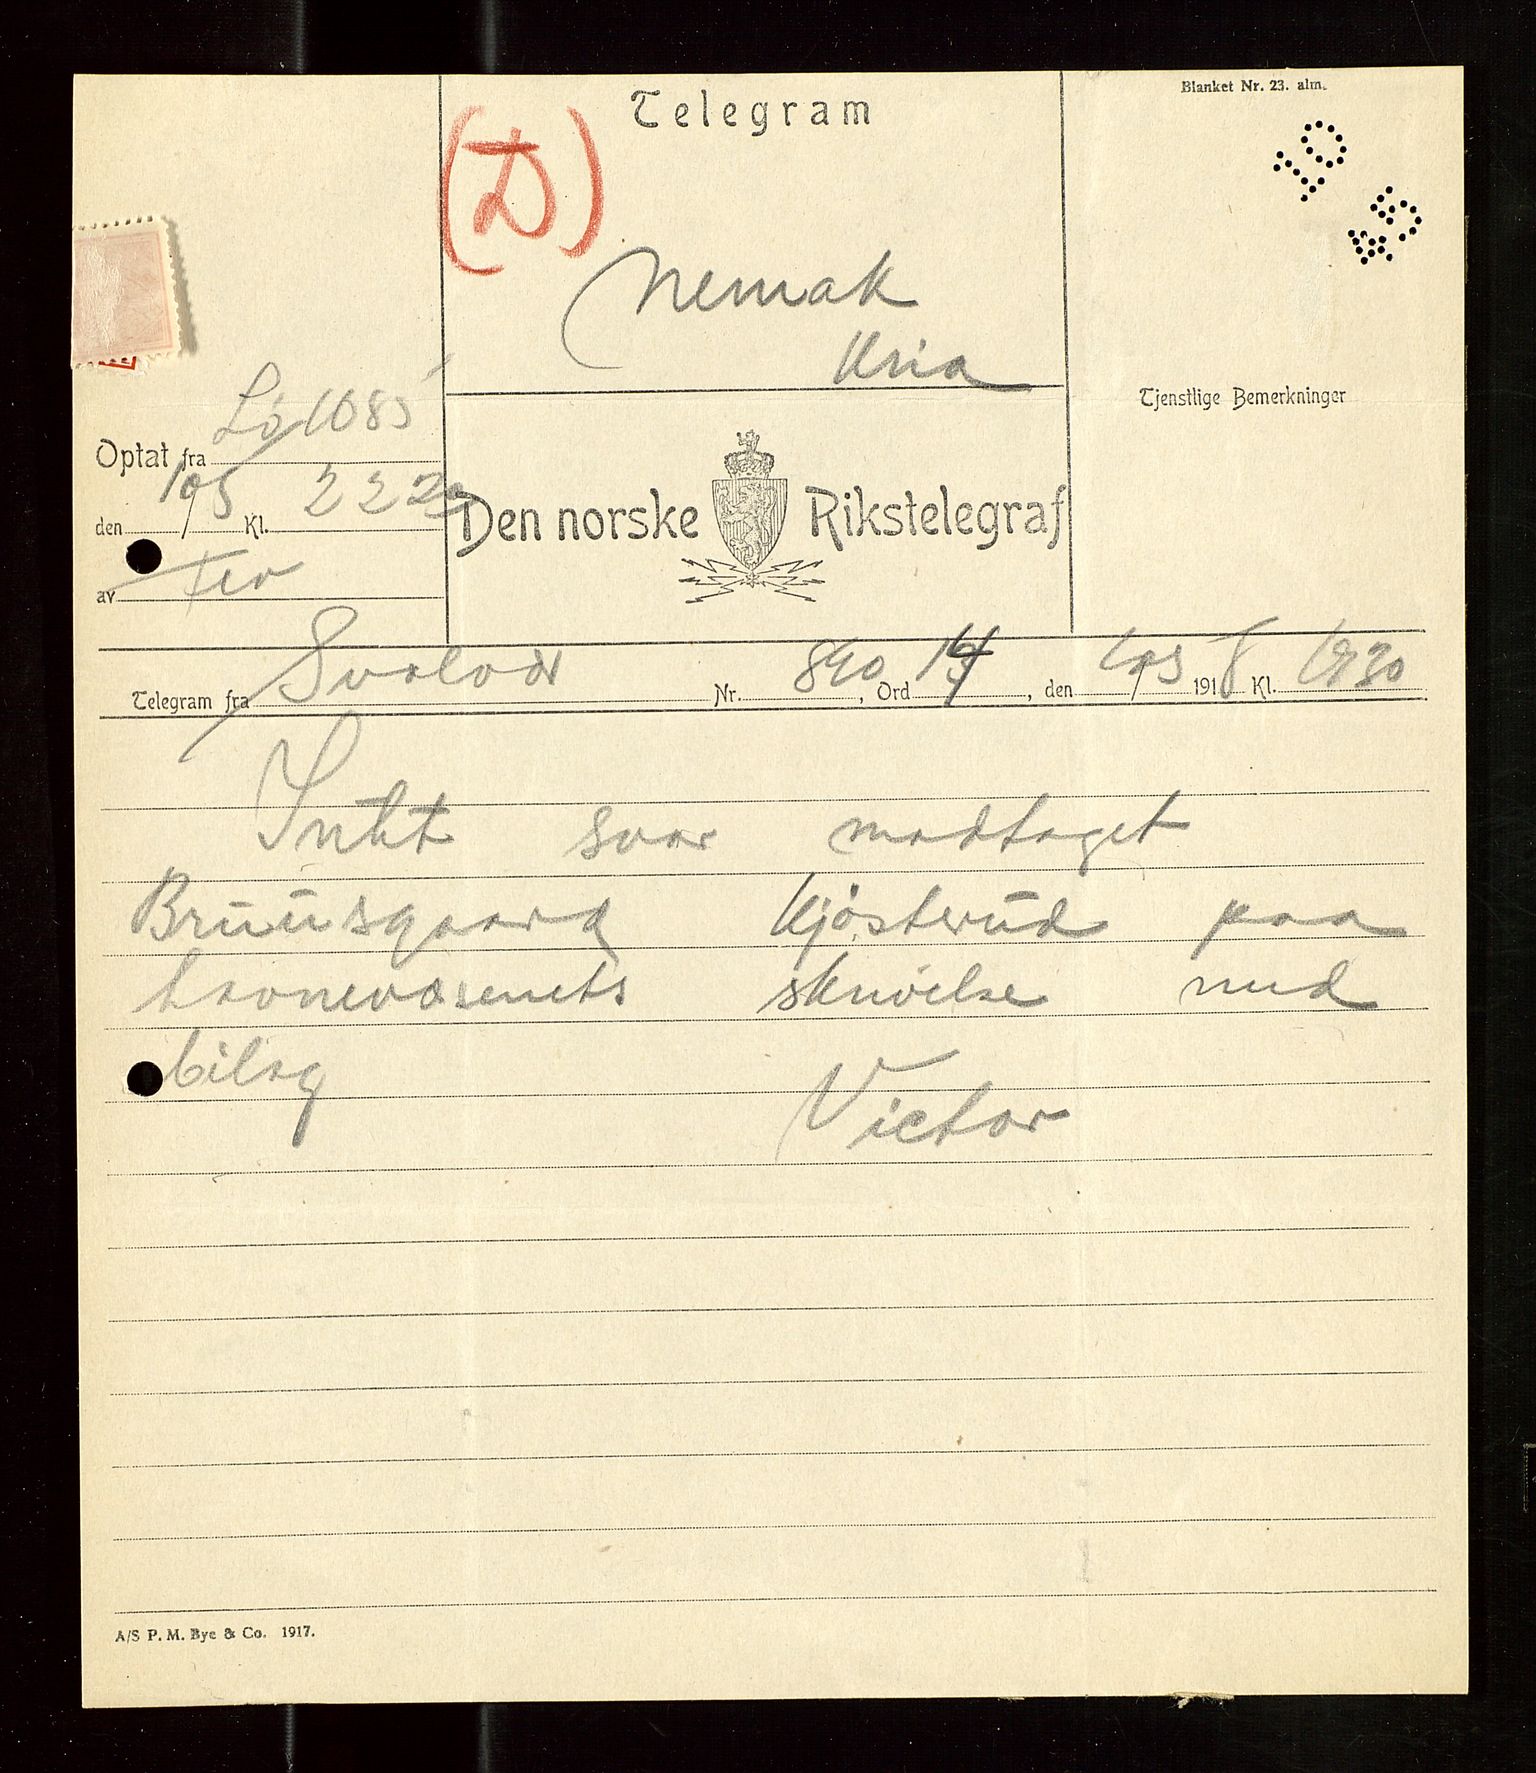 Blanket Nr. 23. alm.
Telegram
(D)
Nemak
Kria
Tjenstlige Bemerkninger
Optat fra Lö 1085
den 10/5 Kl. 2220
av
Den norske Rikstelegraf
Telegram fra Svolvær Nr. 890, Ord 14, den 10/5 1918 Kl. 1930
Intet svar modtaget
Bruusgaard Kjösterud paa
havnevæsenets skrivelse med
bilag
Victor
A/S P. M. Bye & Co. 1917.